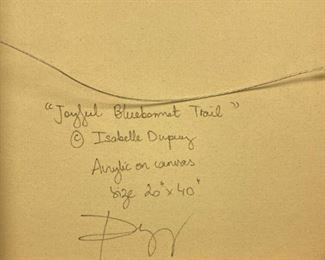 "Joyful Bluebonnet Trail"
© Isabelle Dupuy
Acrylic on canvas
size 20" x 40"